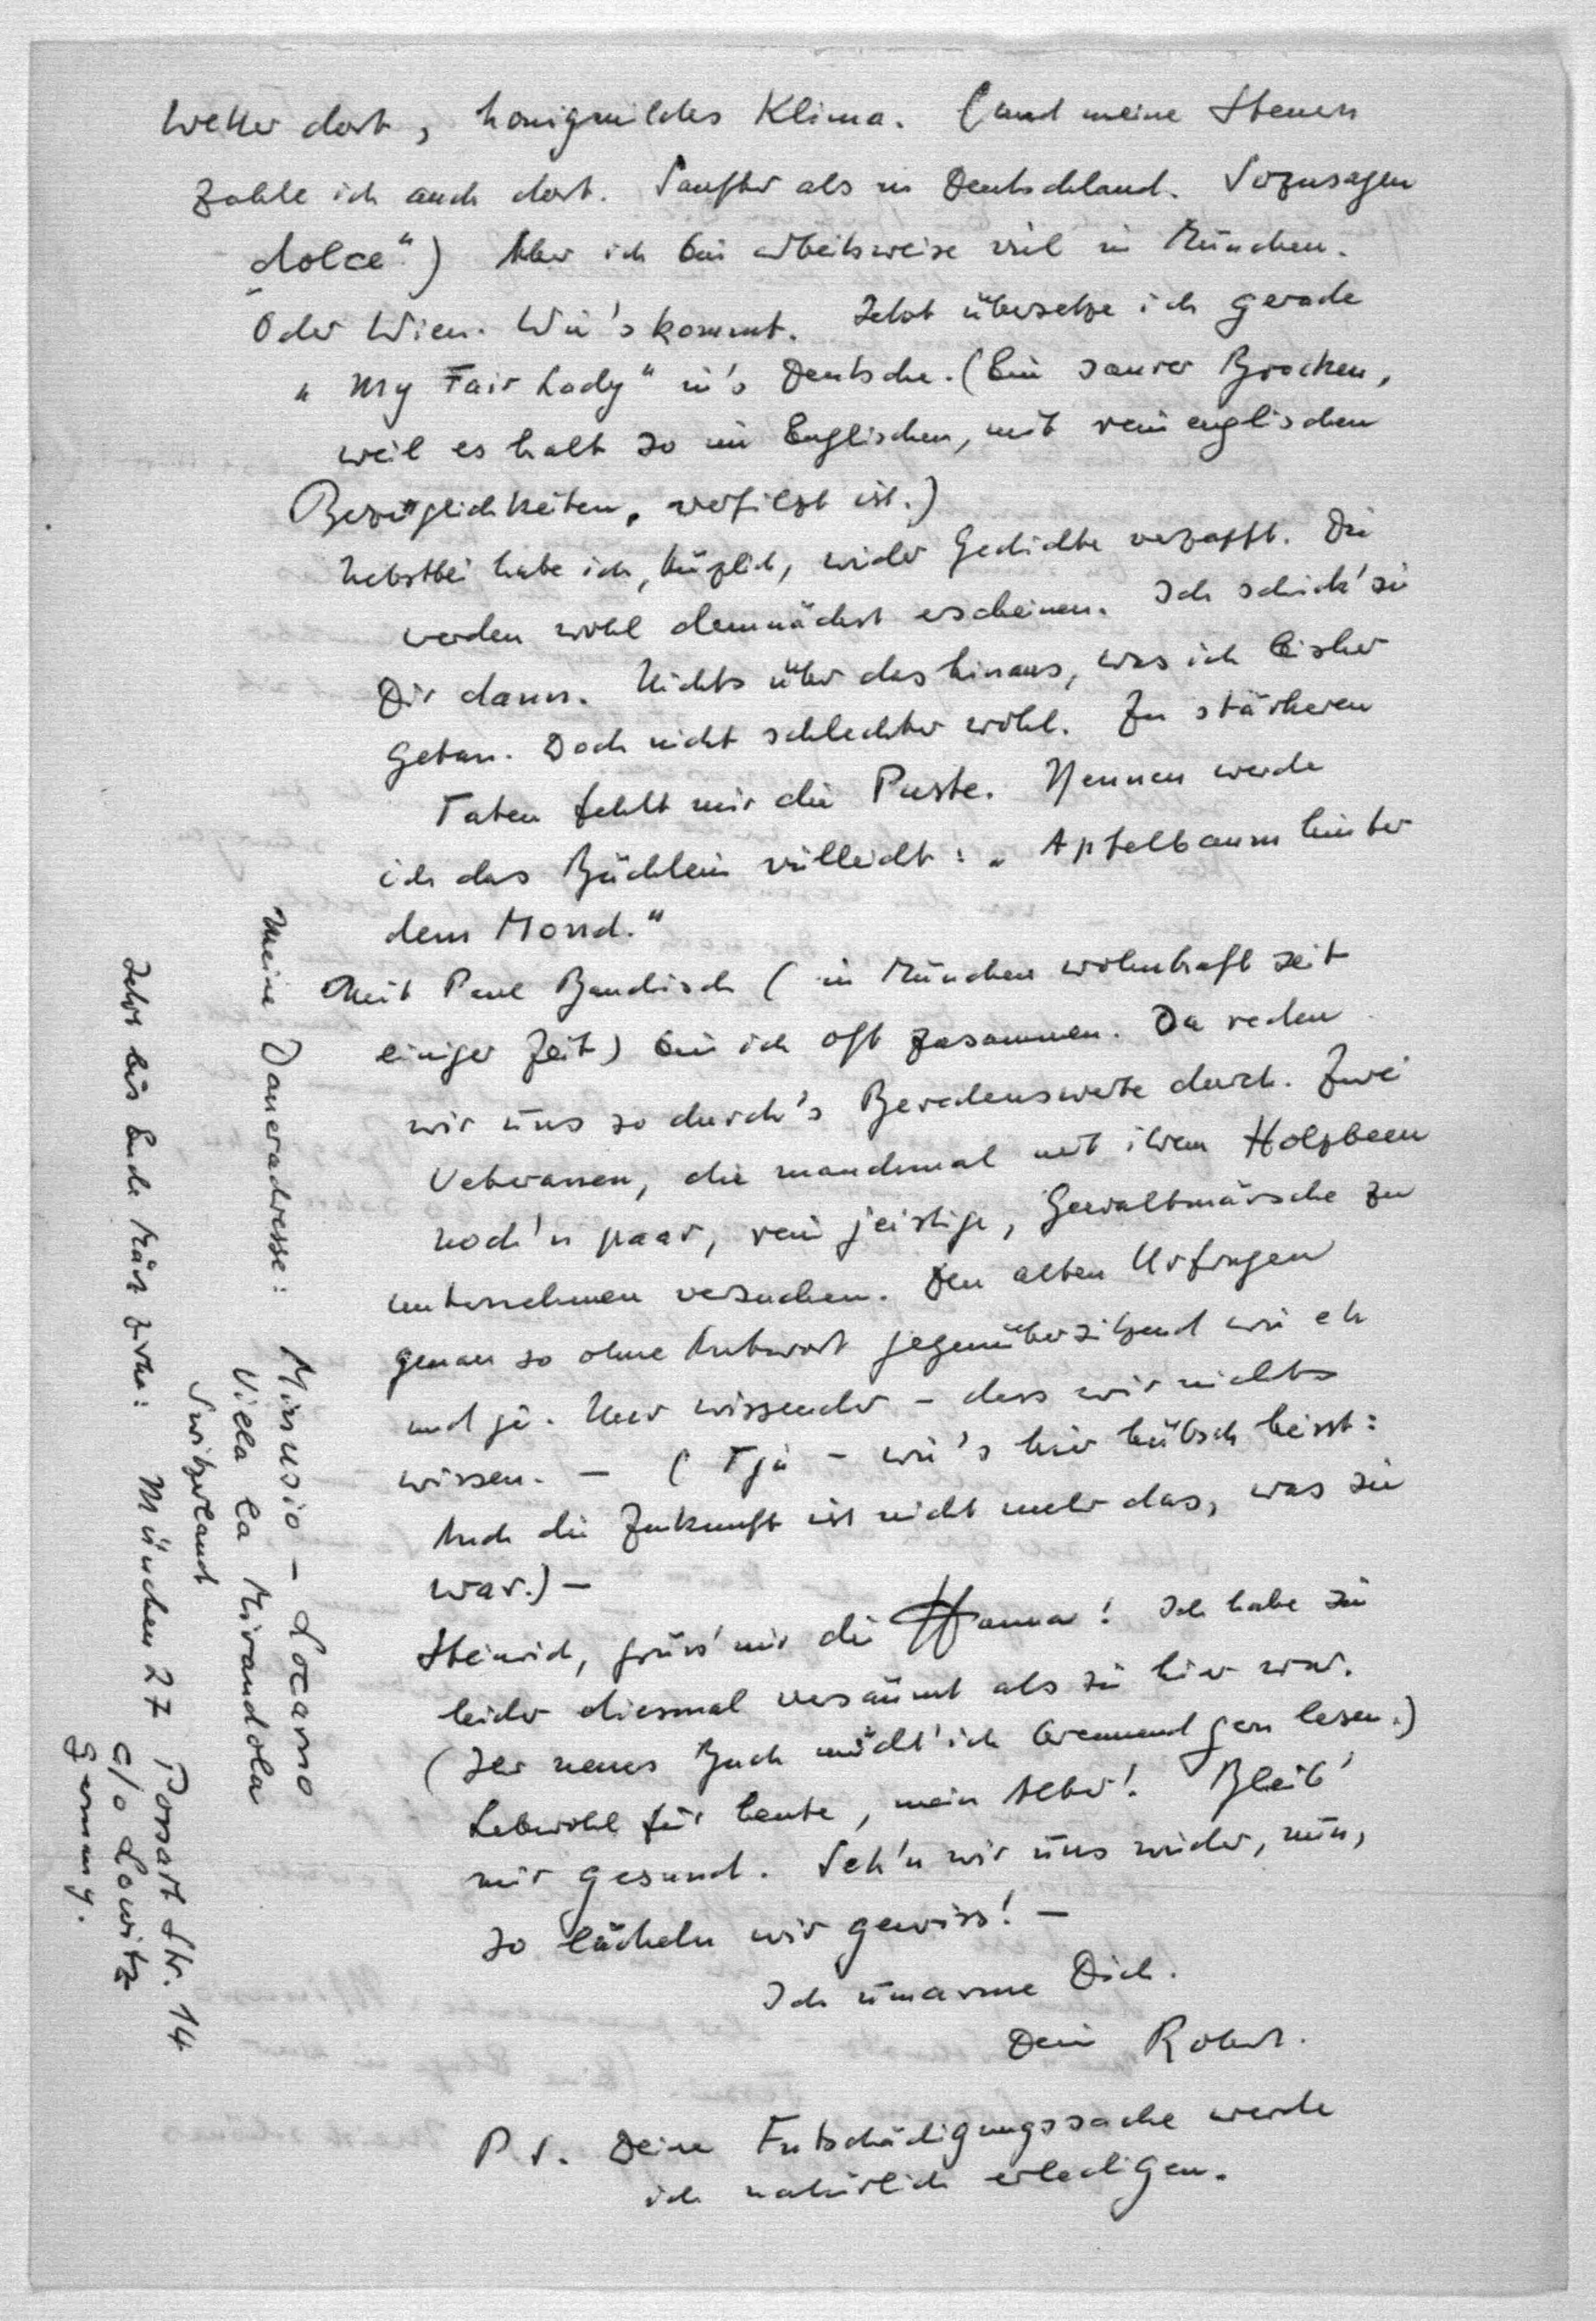 Wetter dort, honigmildes Klima. (und meine Steuern
zahle ich auch dort. Sanfter als in Deutschland. Sozusagen
„dolce“.) Aber ich bin arbeitsweise viel in München.
Oder Wien. Wie's kommt. Jetzt übersetze ich gerade
„My Fair Lady“ in's Deutsche. (Ein saurer Brocken,
weil es halt so im Englischen, mit rein englischen
Bezüglichkeiten, verfilzt ist.)
Nebstbei habe ich, kürzlich, wieder Gedichte verzapft. Die
werden wohl demnächst erscheinen. Ich schick' sie
Dir dann. Nichts über das hinaus, was ich bisher
getan. Doch nicht schlechter wohl. Zu stärkeren
Taten fehlt mir die Puste. Nennen werde
ich das Büchlein vielleicht: „Apfelbaum hinter
dem Mond.“
Mit Paul Baudisch (in München wohnhaft seit
einiger Zeit) bin ich oft zusammen. Da reden
wir uns so durch's Beredenswerte durch. Zwei
Veteranen, die manchmal mit ihrem Holzbeen
noch'n paar, rein jeistige, Gewaltmärsche zu
unternehmen versuchen. Den alten Urfragen
genau so ohne Antwort gegenübersitzend wie eh
und je. Nur wissender – dass wir nichts
wissen. – (Tja – wie's hier hübsch heisst:
Auch die Zukunft ist nicht mehr das, was sie
war.) –
Heinrich, grüss' mir die Hanna! Ich habe sie
leider diesmal versäumt als sie hier war.
(Ihr neues Buch möcht' ich brennend gern lesen.)
Lebwohl für heute, mein Alter! Bleib'
mir gesund. Seh'n wir uns wieder, nun,
so lächeln wir gewiss! –
Ich umarme Dich.
Dein Robert.
P.S. Deine Entschädigungssache werde
ich natürlich erledigen.
Meine Daueradresse: Minusio – Locarno
Villa la Mirandola
Switzerland
Jetzt bis Ende März zirka: München 27 Possart Str. 14
c/o Lowitz
Germany.